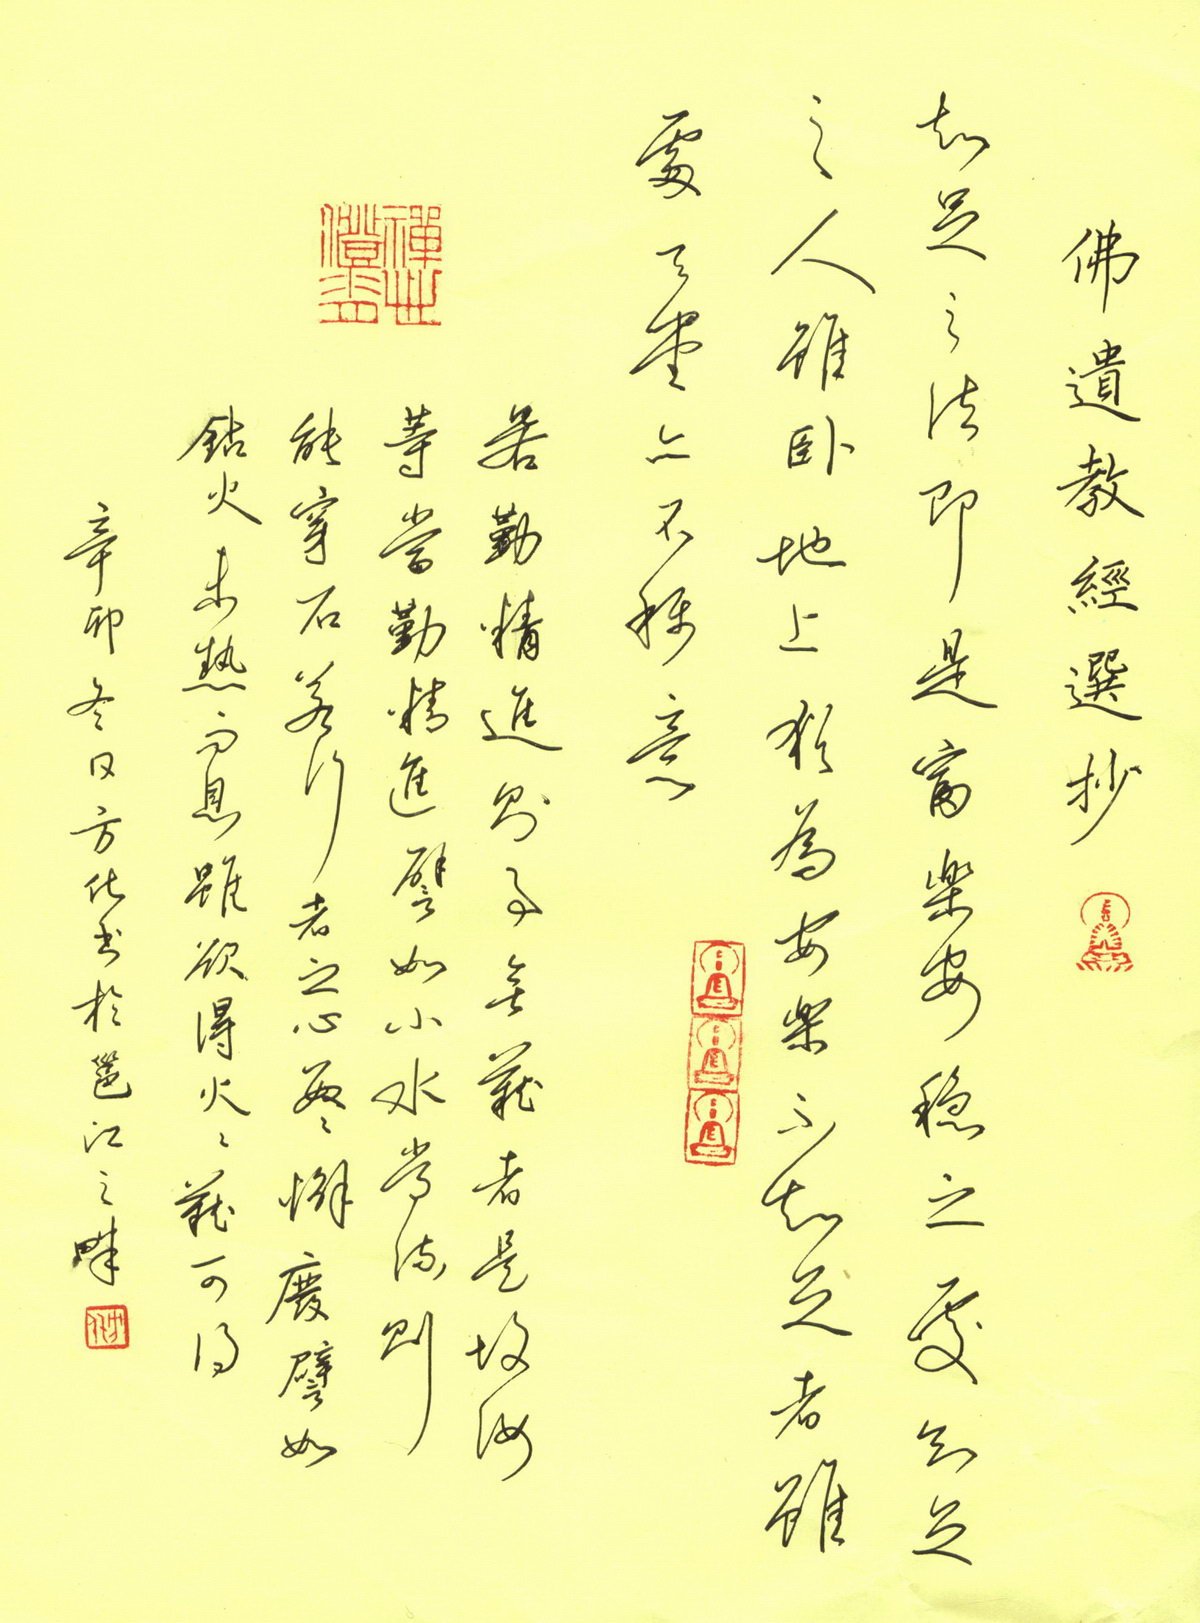 佛遺教經選抄
知足之法即是富樂安穩之處知足
之人雖卧地上猶為安樂不知足者雖
處天堂亦不稱意
若勤精進則事無難者是故汝
等當勤精進譬如小水常流則
能穿石若行者之心數〻懈廢譬如
鉆火未熱而息雖欲得火〻難可得
辛卯冬日方化書於邕江之畔